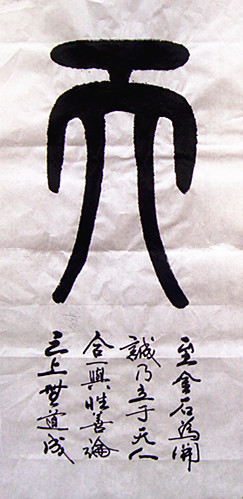 天
至金石為開
誠乃立于天人
合一與性善論
之上道成